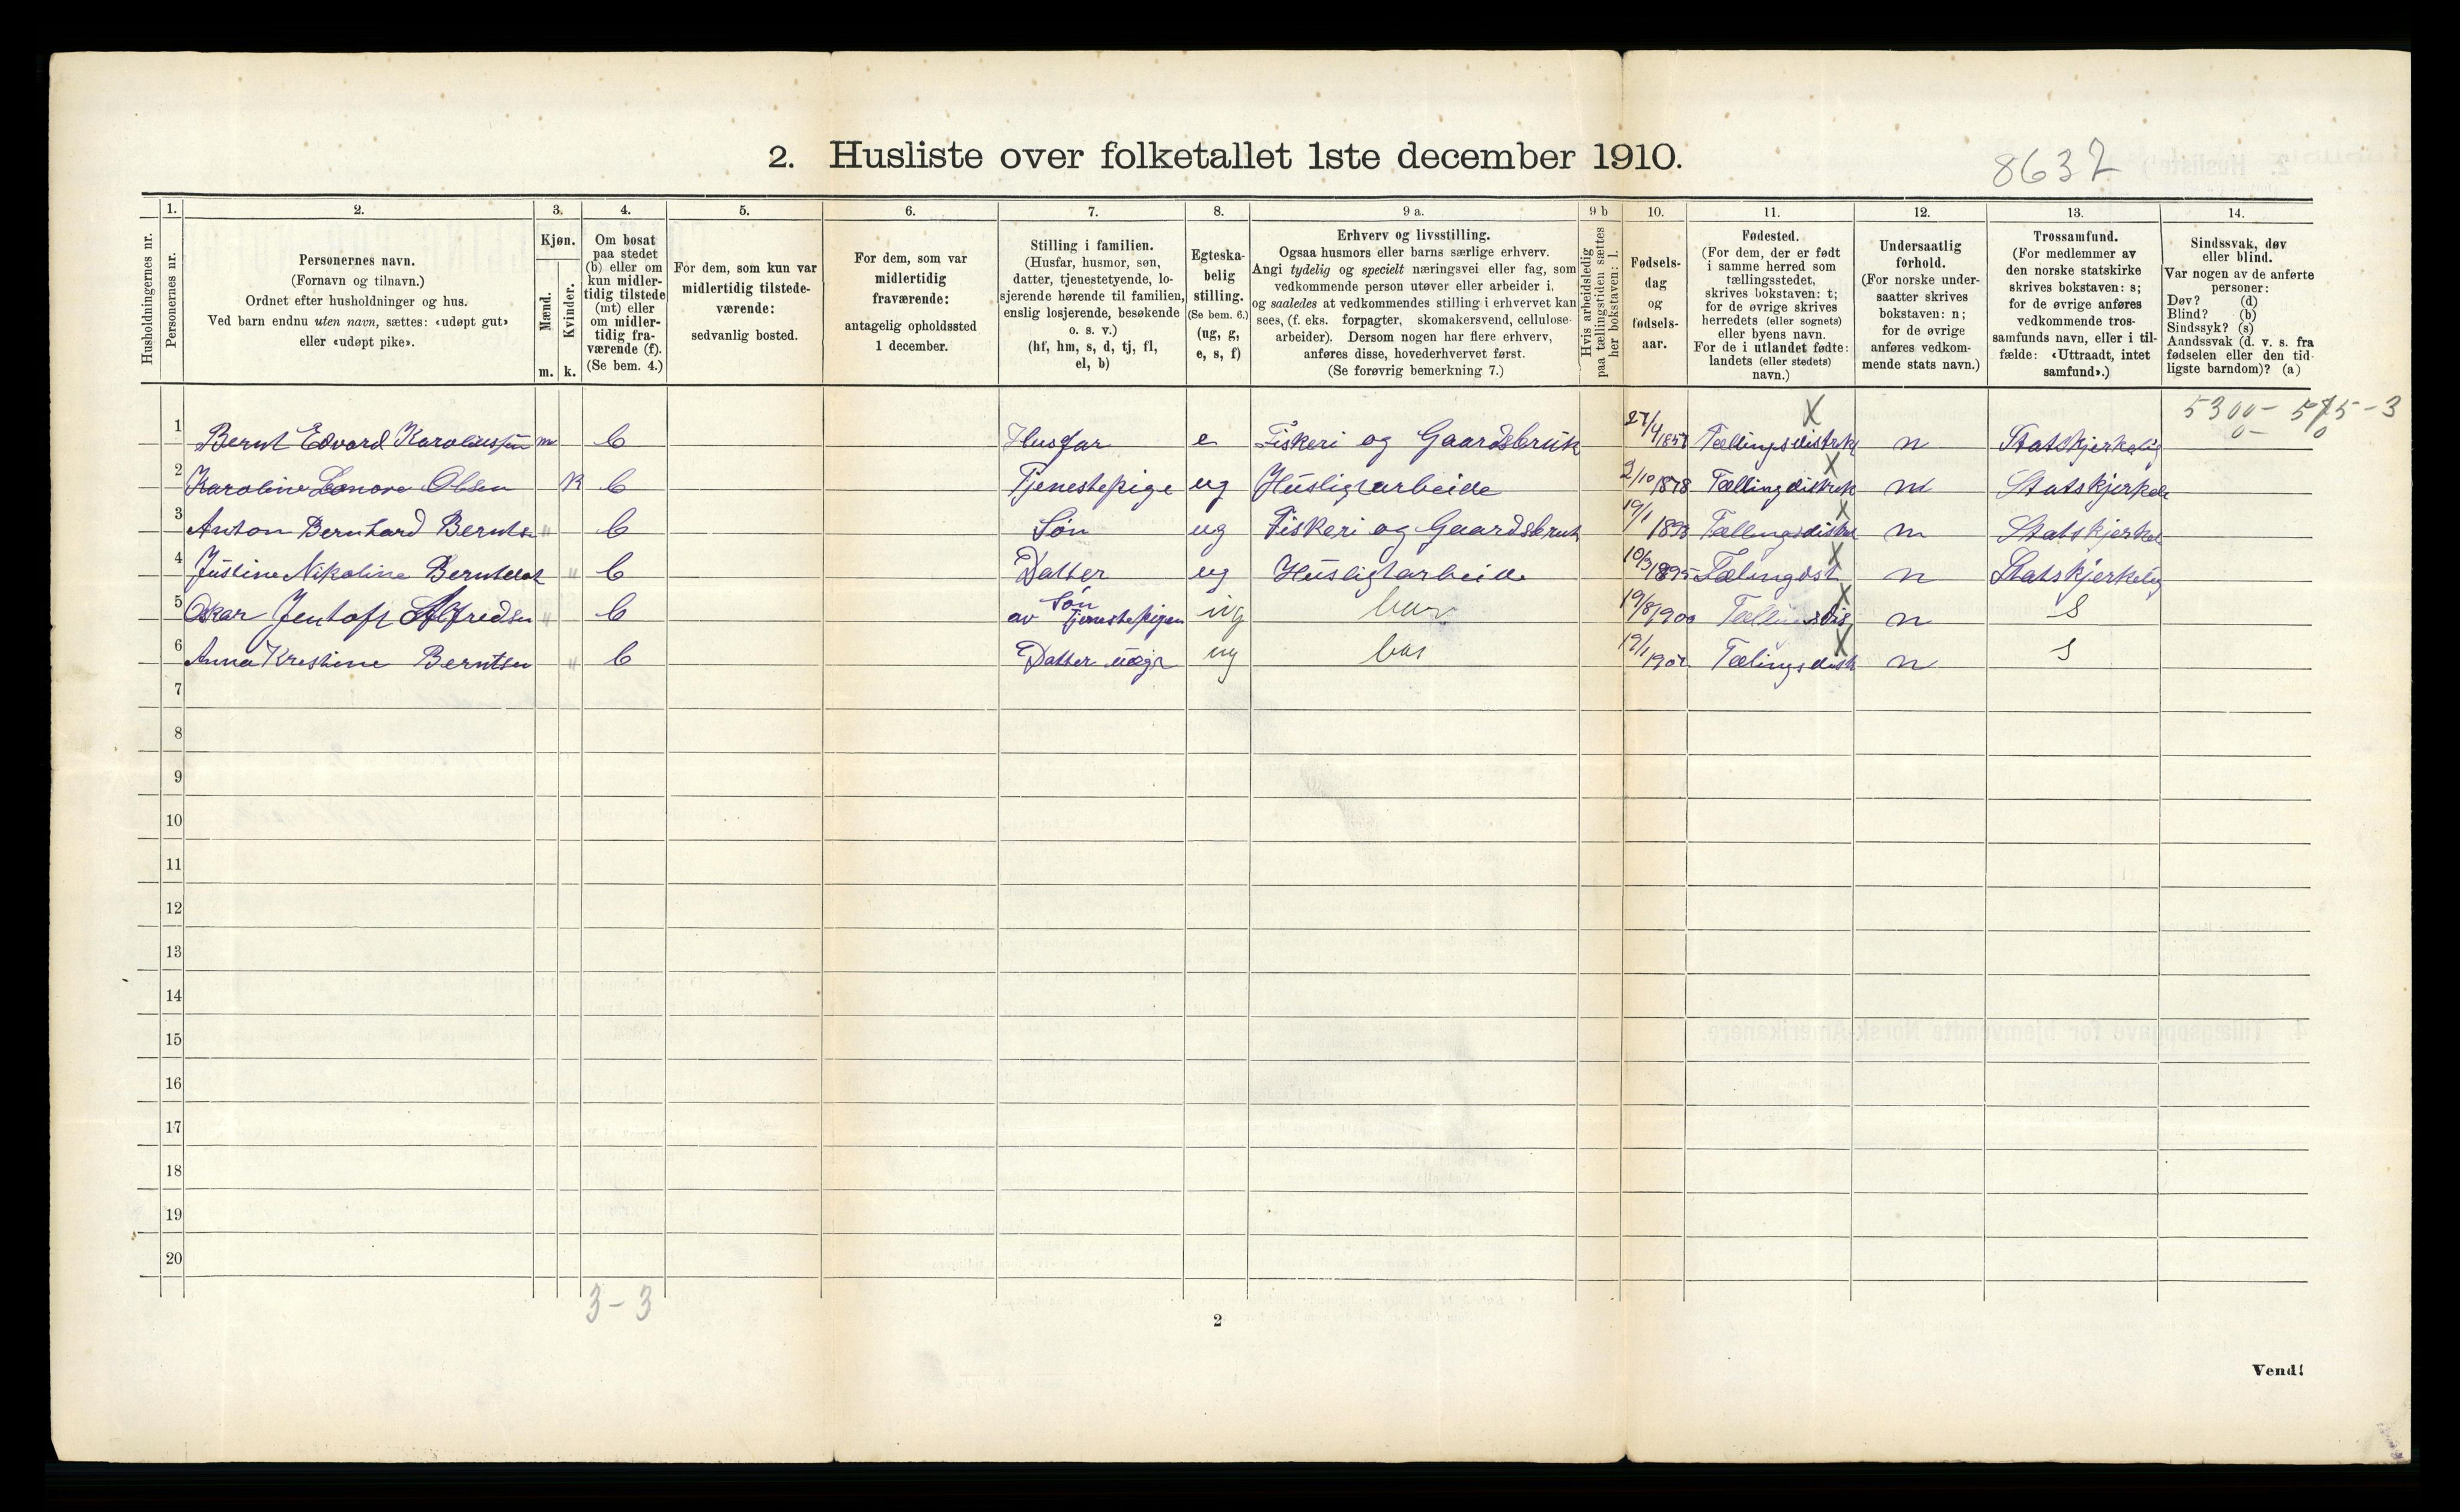 2. Husliste over folketallet 1ste december 1910.
8632
Husholdningernes nr.
1.
Personernes nr.
2.
Personernes navn.
(Fornavn og tilnavn.)
Ordnet efter husholdninger og hus.
Ved barn endnu uten navn, sættes: «udøpt gut»
eller «udøpt pike».
3.
Kjøn.
Mænd.
Kvinder.
m. k.
4.
Om bosat
paa stedet
(b) eller om
kun midler-
tidig tilstede
(mt) eller
om midler-
tidig fra-
værende (f).
(Se bem. 4.)
5.
For dem, som kun var
midlertidig tilstede-
værende:
sedvanlig bosted.
6.
For dem, som var
midlertidig
fraværende:
antagelig opholdssted
1 december.
7.
Stilling i familien.
(Husfar, husmor, søn,
datter, tjenestetyende, lo-
sjerende hørende til familien,
enslig losjerende, besøkende
o. s. v.)
(hf, hm, s, d, tj, fl,
el, b)
8.
Egteska-
belig
stilling.
(Se bem. 6.)
(ug, g,
e, s, f)
9 a.
Erhverv og livsstilling.
Ogsaa husmors eller barns særlige erhverv.
Angi tydelig og specielt næringsvei eller fag, som
vedkommende person utøver eller arbeider i,
og saaledes at vedkommendes stilling i erhvervet kan
sees, (f. eks. forpagter, skomakersvend, cellulose-
arbeider). Dersom nogen har flere erhverv,
anføres disse, hovederhvervet først.
(Se forøvrig bemerkning 7.)
9 b
Hvis arbeidsledig
paa tællingstiden sættes
her bokstaven: l.
10.
Fødsels-
dag
og
fødsels-
aar.
11.
Fødested.
(For dem, der er født
i samme herred som
tællingsstedet,
skrives bokstaven: t;
for de øvrige skrives
herredets (eller sognets)
eller byens navn.
For de i utlandet fødte:
landets (eller stedets)
navn.)
12.
Undersaatlig
forhold.
(For norske under-
saatter skrives
bokstaven: n;
for de øvrige
anføres vedkom-
mende stats navn.)
13.
Trossamfund.
(For medlemmer av
den norske statskirke
skrives bokstaven: s;
for de øvrige anføres
vedkommende tros-
samfunds navn, eller i til-
fælde: «Uttraadt, intet
samfund».)
14.
Sindssvak, døv
eller blind.
Var nogen av de anførte
personer:
Døv? (d)
Blind? (b)
Sindssyk? (s)
Aandssvak (d. v. s. fra
fødselen eller den tid-
ligste barndom)? (a)
5300- 575-3
0- 0
1 Bernt Edvard Karoliussen m b Husfar e Fiskeri og Gaardsbruk 27/4 X Tællingsdistrikt n Statskjerkelig
2 Karoline Lenore Olsen K b Tjenestepige ug Husligtarbeide 2/10 1878 X Tællingdistrik n Statskjerkeli
3 Anton Bernhard Bernts " b Søn ug Fiskeri og Gaardsbruk 19/1 X Tællingsdistrk n Statskjerkel
4 Justine Nikoline Berntsdat " b Datter ug Husligtarbeide 10/3 1895 X Tælingdst n Statskjerkelig
5 Oskar Jentoft Alfredsen " b Søn av Tjenestepigen ug barn 19/8 1900 X Tællinsdis n S
6 Anna Kristine Berntsen " b Datter uægt ug bar 19/1 X Tælingsdistk n S
7
8
9
10
11
12
13
14
15
16
17
18
19
20
3-3
2
Vend!